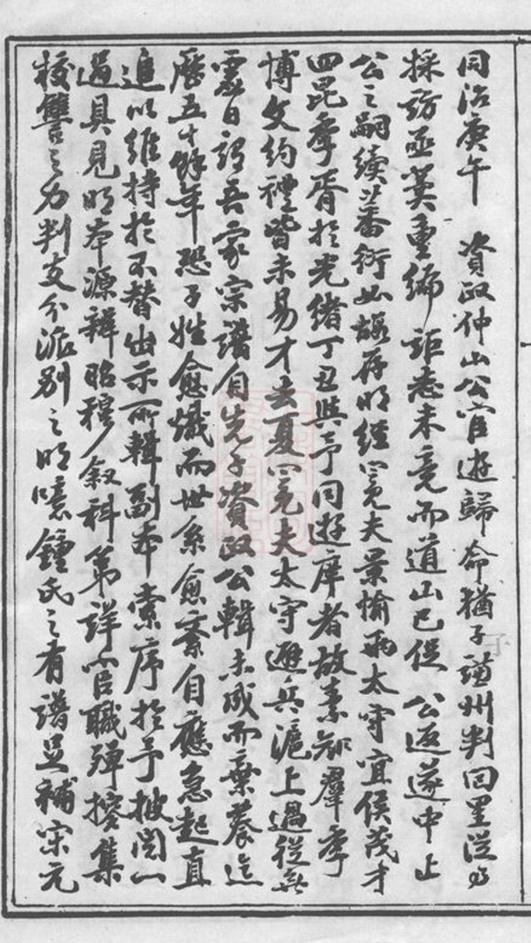 同治庚午　資政仲山公官遊歸命猶子議州判回里從
採訪亟冀重編　詎志未竟而道山已促　公返遂中止
公之嗣續蕃衍如存明經冕夫景愉兩太守宜侯茂才
四昆季胥於光緒丁丑與予同遊庠者故素知羣季
博文約禮皆未易才去夏冕夫太守避兵滬上過從
日謂吾家宗譜自先子資政公輯未成而棄養迄
歷五十餘年恐子姓愈熾而世系愈紊自應急起直
追以維持於不替出示所輯副本索序於予披閱一
過具見明本源辨昭穆敘科第詳官職殫搜集
校讐之力判支分派別之明噫鍾氏之有譜足補宋元